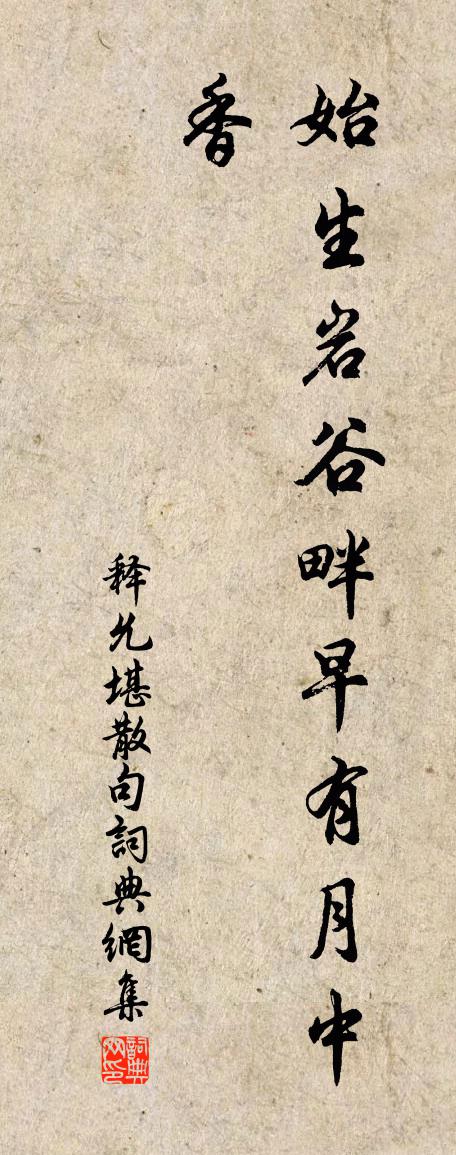 始生岩谷畔早有月中
香
释允堪散句詞典網集
詞典网印